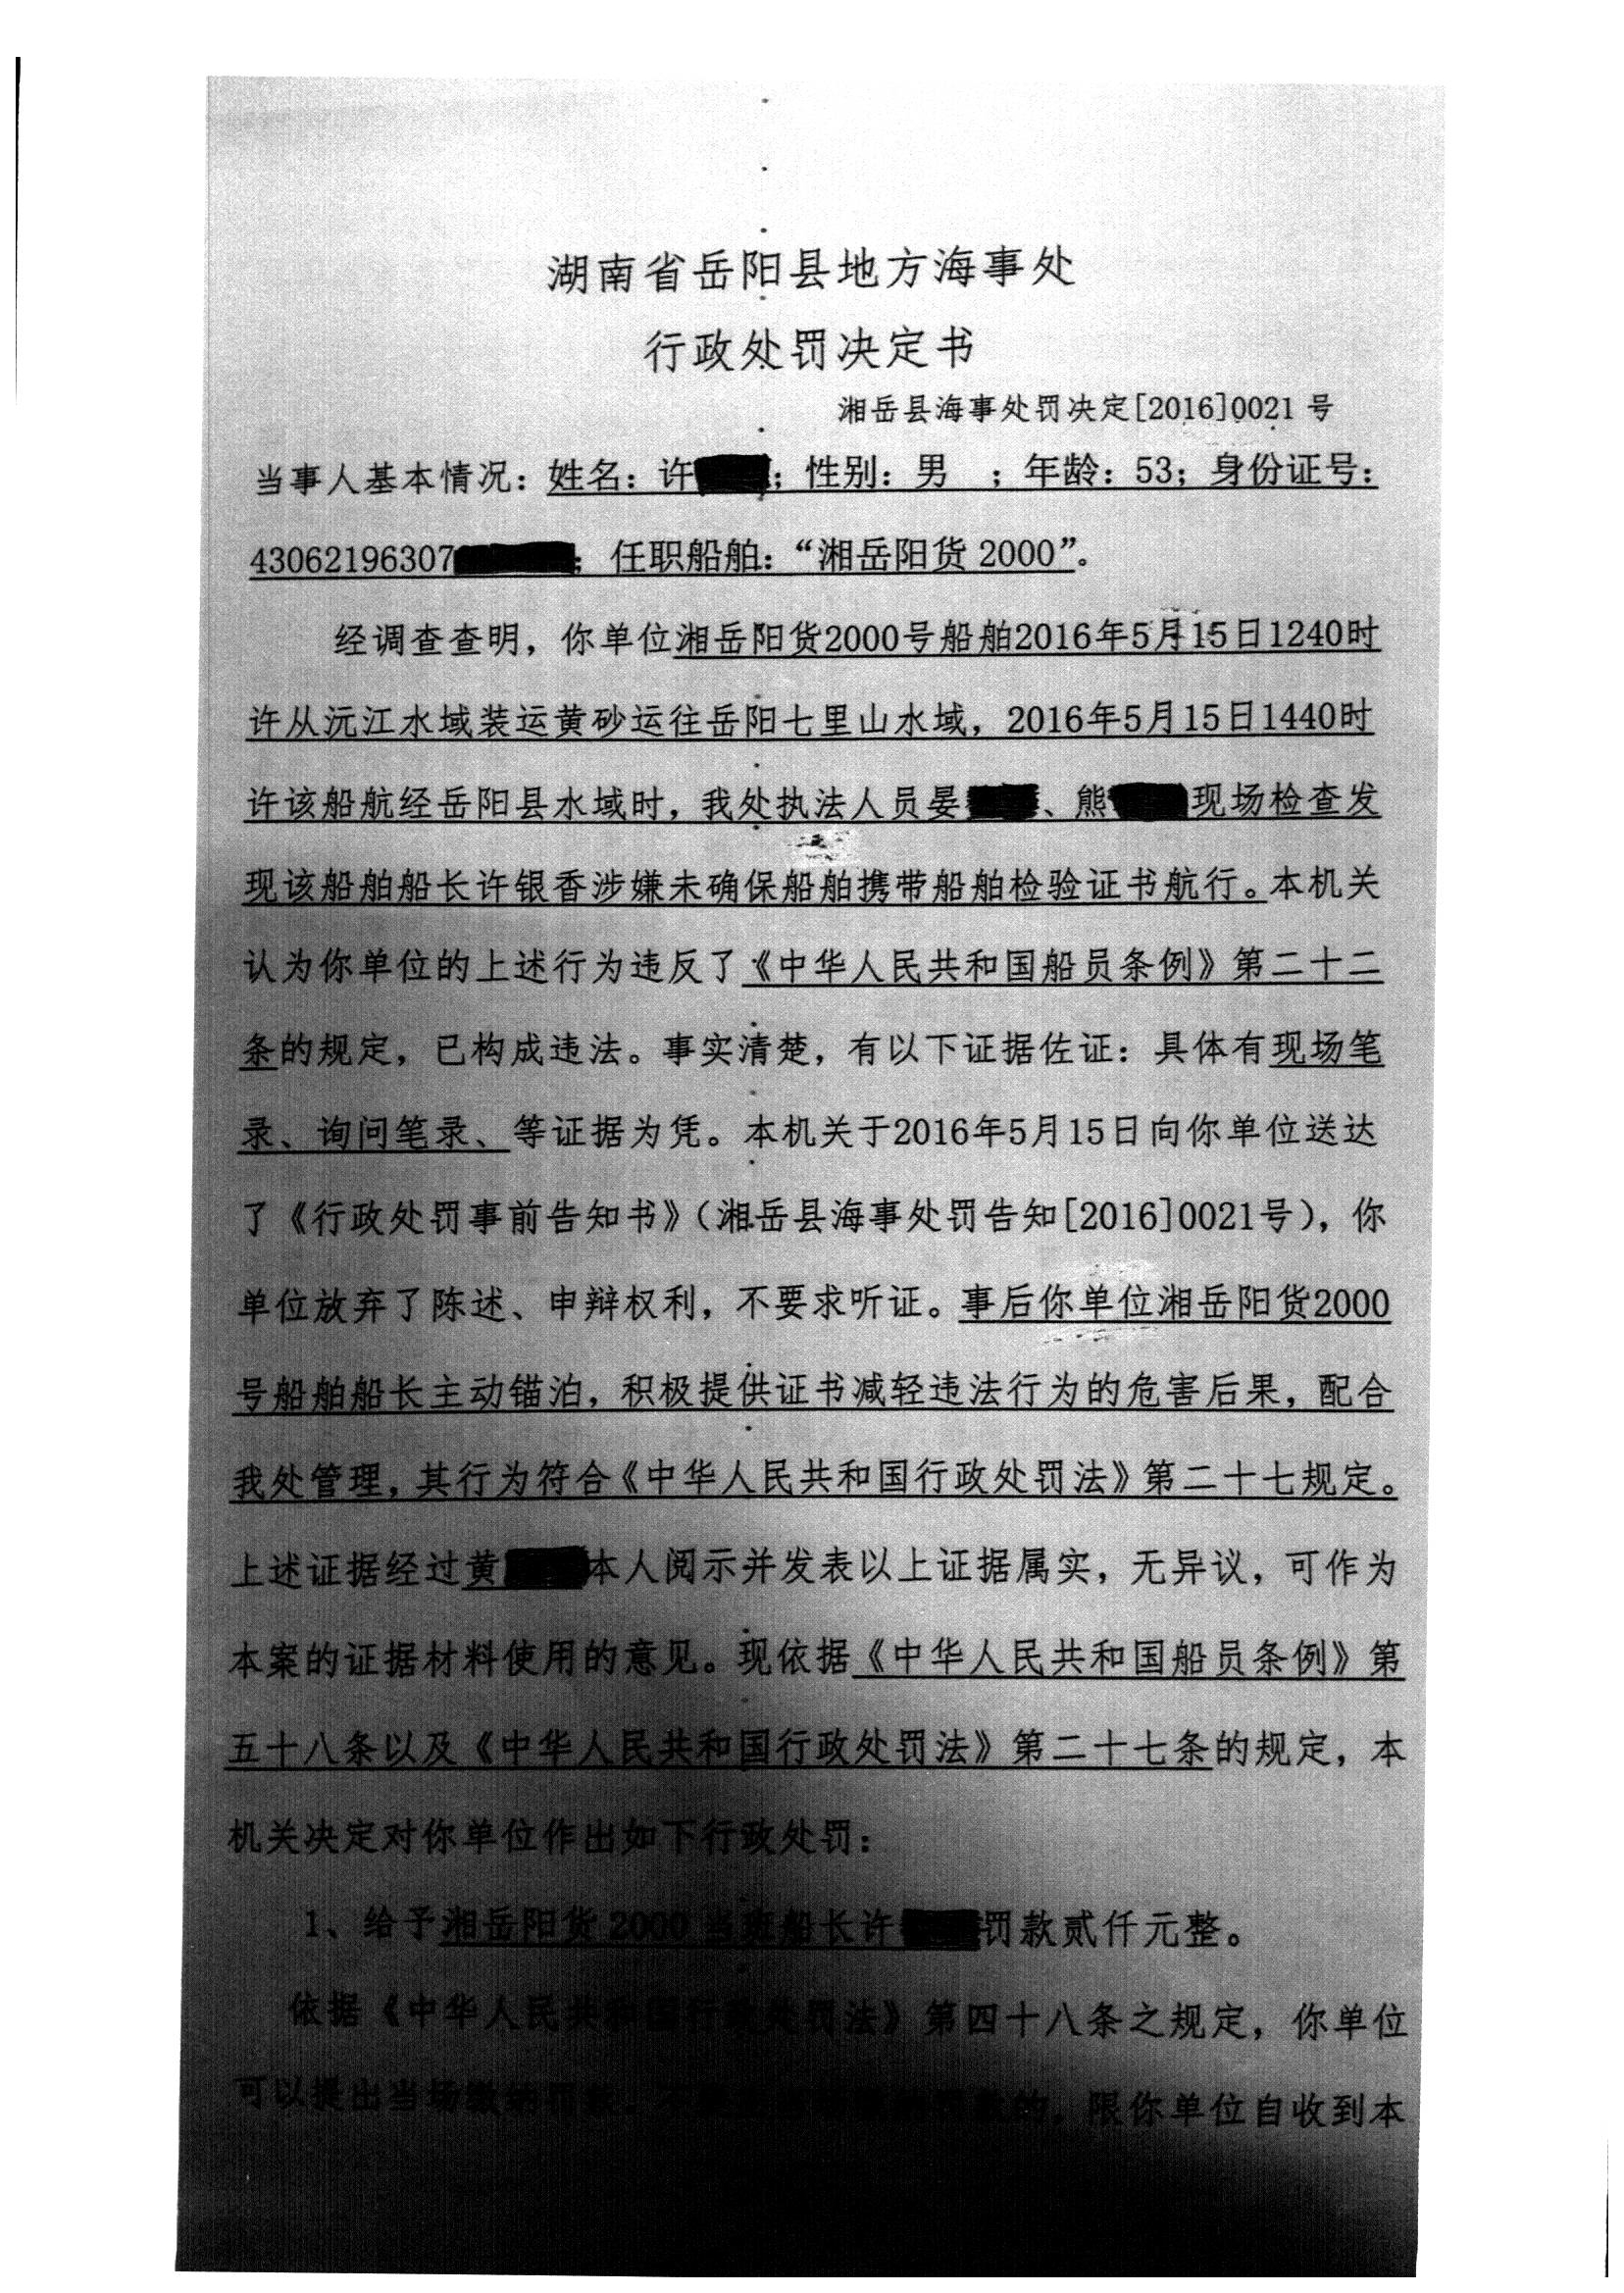 湖南省岳阳县地方海事处
行政处罚决定书
湘岳县海事处罚决定[2016]0021 号
当事人基本情况：姓名：许；性别：男 ；年龄：53；身份证号：
43062196307；任职船舶：“湘岳阳货 2000”。
经调查查明，你单位湘岳阳货2000号船舶2016年5月15日1240时
许从沅江水域装运黄砂运往岳阳七里山水域，2016年5月15日1440时
许该船航经岳阳县水域时，我处执法人员晏、熊现场检查发
现该船舶船长许银香涉嫌未确保船舶携带船舶检验证书航行。本机关
认为你单位的上述行为违反了《中华人民共和国船员条例》第二十二
条的规定，已构成违法。事实清楚，有以下证据佐证：具体有现场笔
录、询问笔录、等证据为凭。本机关于2016年5月15日向你单位送达
了《行政处罚事前告知书》（湘岳县海事处罚告知[2016]0021号），你
单位放弃了陈述、申辩权利，不要求听证。事后你单位湘岳阳货2000
号船舶船长主动锚泊，积极提供证书减轻违法行为的危害后果，配合
我处管理，其行为符合《中华人民共和国行政处罚法》第二十七规定。
上述证据经过黄本人阅示并发表以上证据属实，无异议，可作为
本案的证据材料使用的意见。现依据《中华人民共和国船员条例》第
五十八条以及《中华人民共和国行政处罚法》第二十七条的规定，本
机关决定对你单位作出如下行政处罚：
1、给予湘岳阳货 2000 当班船长许罚款贰仟元整。
依据《中华人民共和国行政处罚法》第四十八条之规定，你单位
可以提出当场缴纳罚款，的，限你单位自收到本